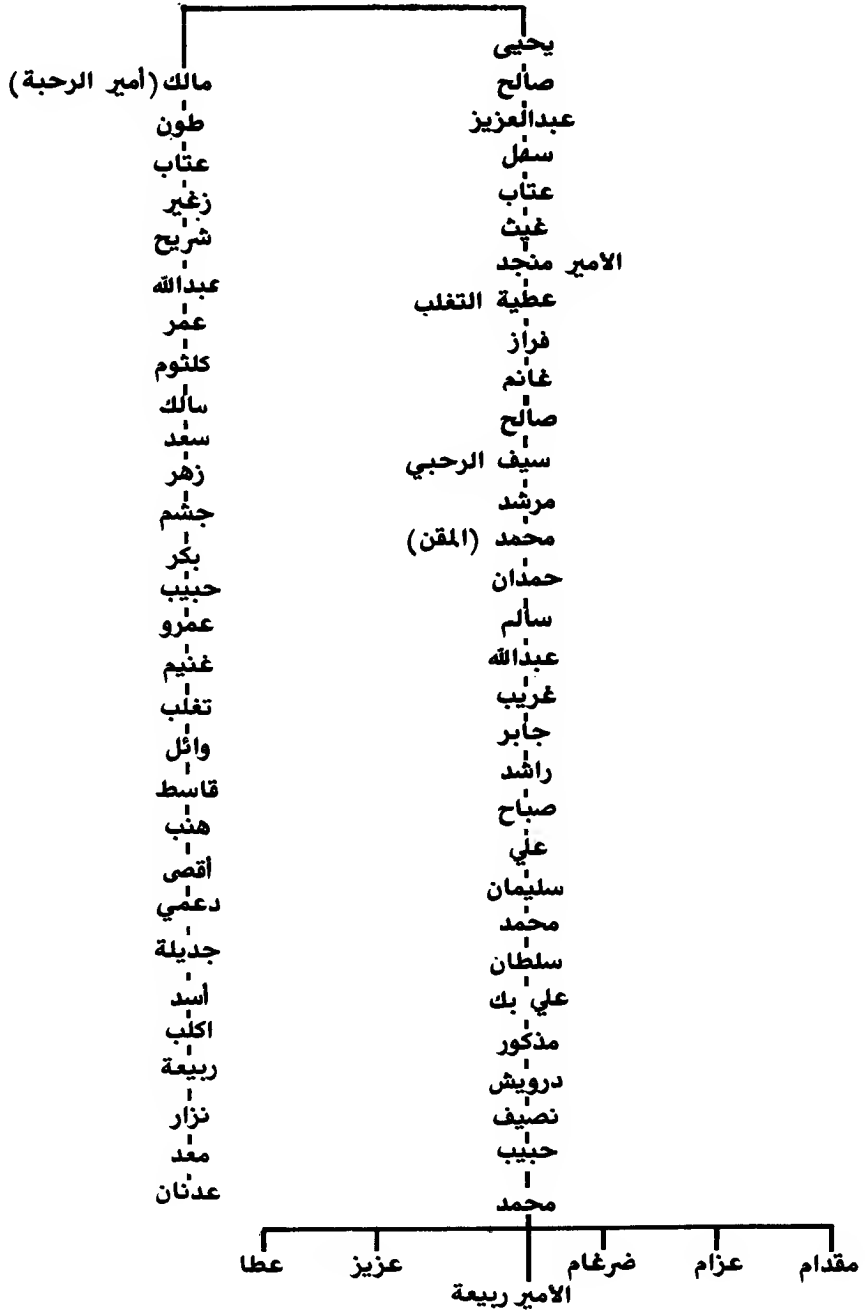 يحيى
صالح
عبدالعزيز
سهل
عتاب
غيث
الامير منجد
عطية التغلب
فراز
غانم
صالح
سيف الرحبي
مرشد
محمد (المقن)
حمدان
سالم
عبدالله
غريب
جابر
راشد
صباح
علي
سليمان
محمد
سلطان
علي بك
مذكور
درويش
نصيف
حبيب
محمد
مالك (أمير الرحبة)
طون
عتاب
زغير
شريح
عبدالله
عمر
كلثوم
مالك
سعد
زهر
جشم
بكر
حبيب
عمرو
غنيم
تغلب
وائل
قاسط
هنب
أقصى
دعمي
جديلة
أسد
اكلب
ربيعة
نزار
معد
عدنان
مقدام عزام ضرغام عزيز عطا
الامير ربيعة